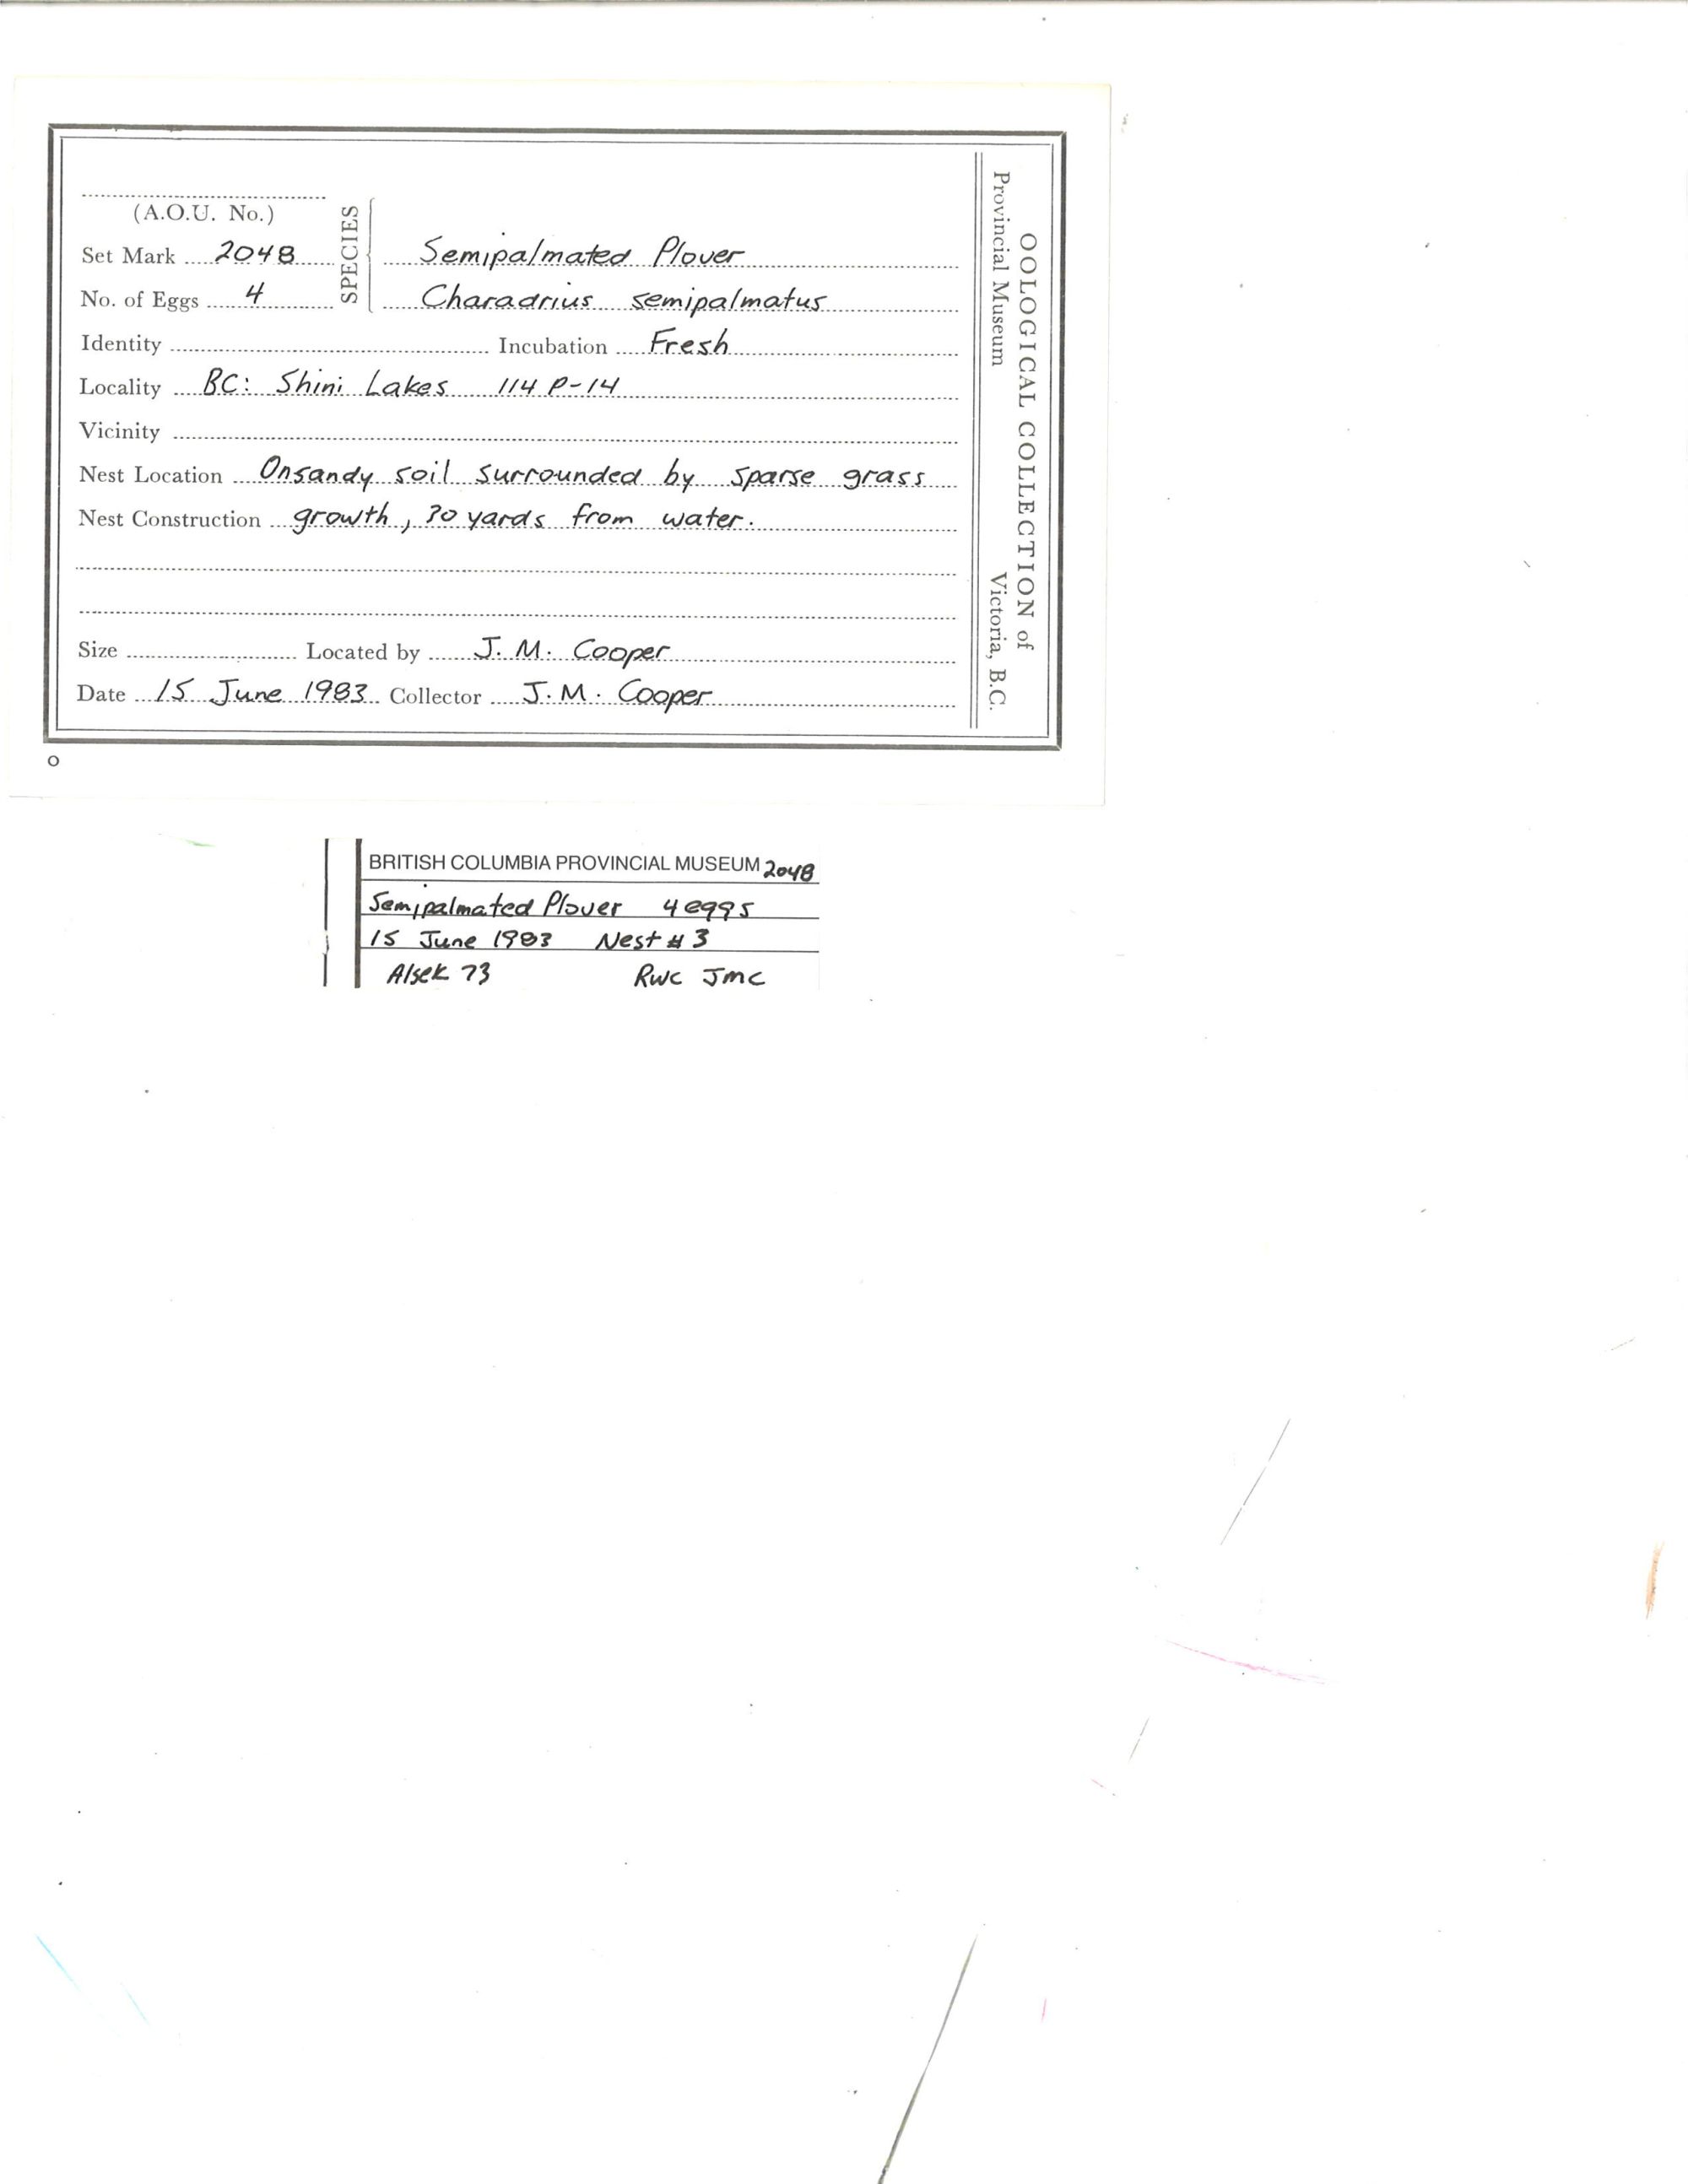 (A.O.U. No.)
SPECIES
Set Mark 2048 Semipalmated Plover
No. of Eggs 4 Charadrius semipalmatus
Identity Incubation Fresh
Locality BC: Shini Lakes 114 P-14
Vicinity
Nest Location On sandy soil surrounded by sparse grass
Nest Construction growth, 30 yards from water.
Size Located by J. M. Cooper
Date 15 June 1983 Collector J. M. Cooper
OOLOGICAL COLLECTION of
Provincial Museum Victoria, B.C.
BRITISH COLUMBIA PROVINCIAL MUSEUM 2048
Semipalmated Plover 4 eggs
15 June 1983 Nest # 3
Alsek 73 RWC JMC